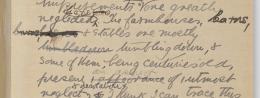 improvements & one greatly
neglected. The farmhouses, barns,
& stables are mostly
tumbling down, &
some of them being centuries old,
present appearance of utmost
neglect & I think I can trace this